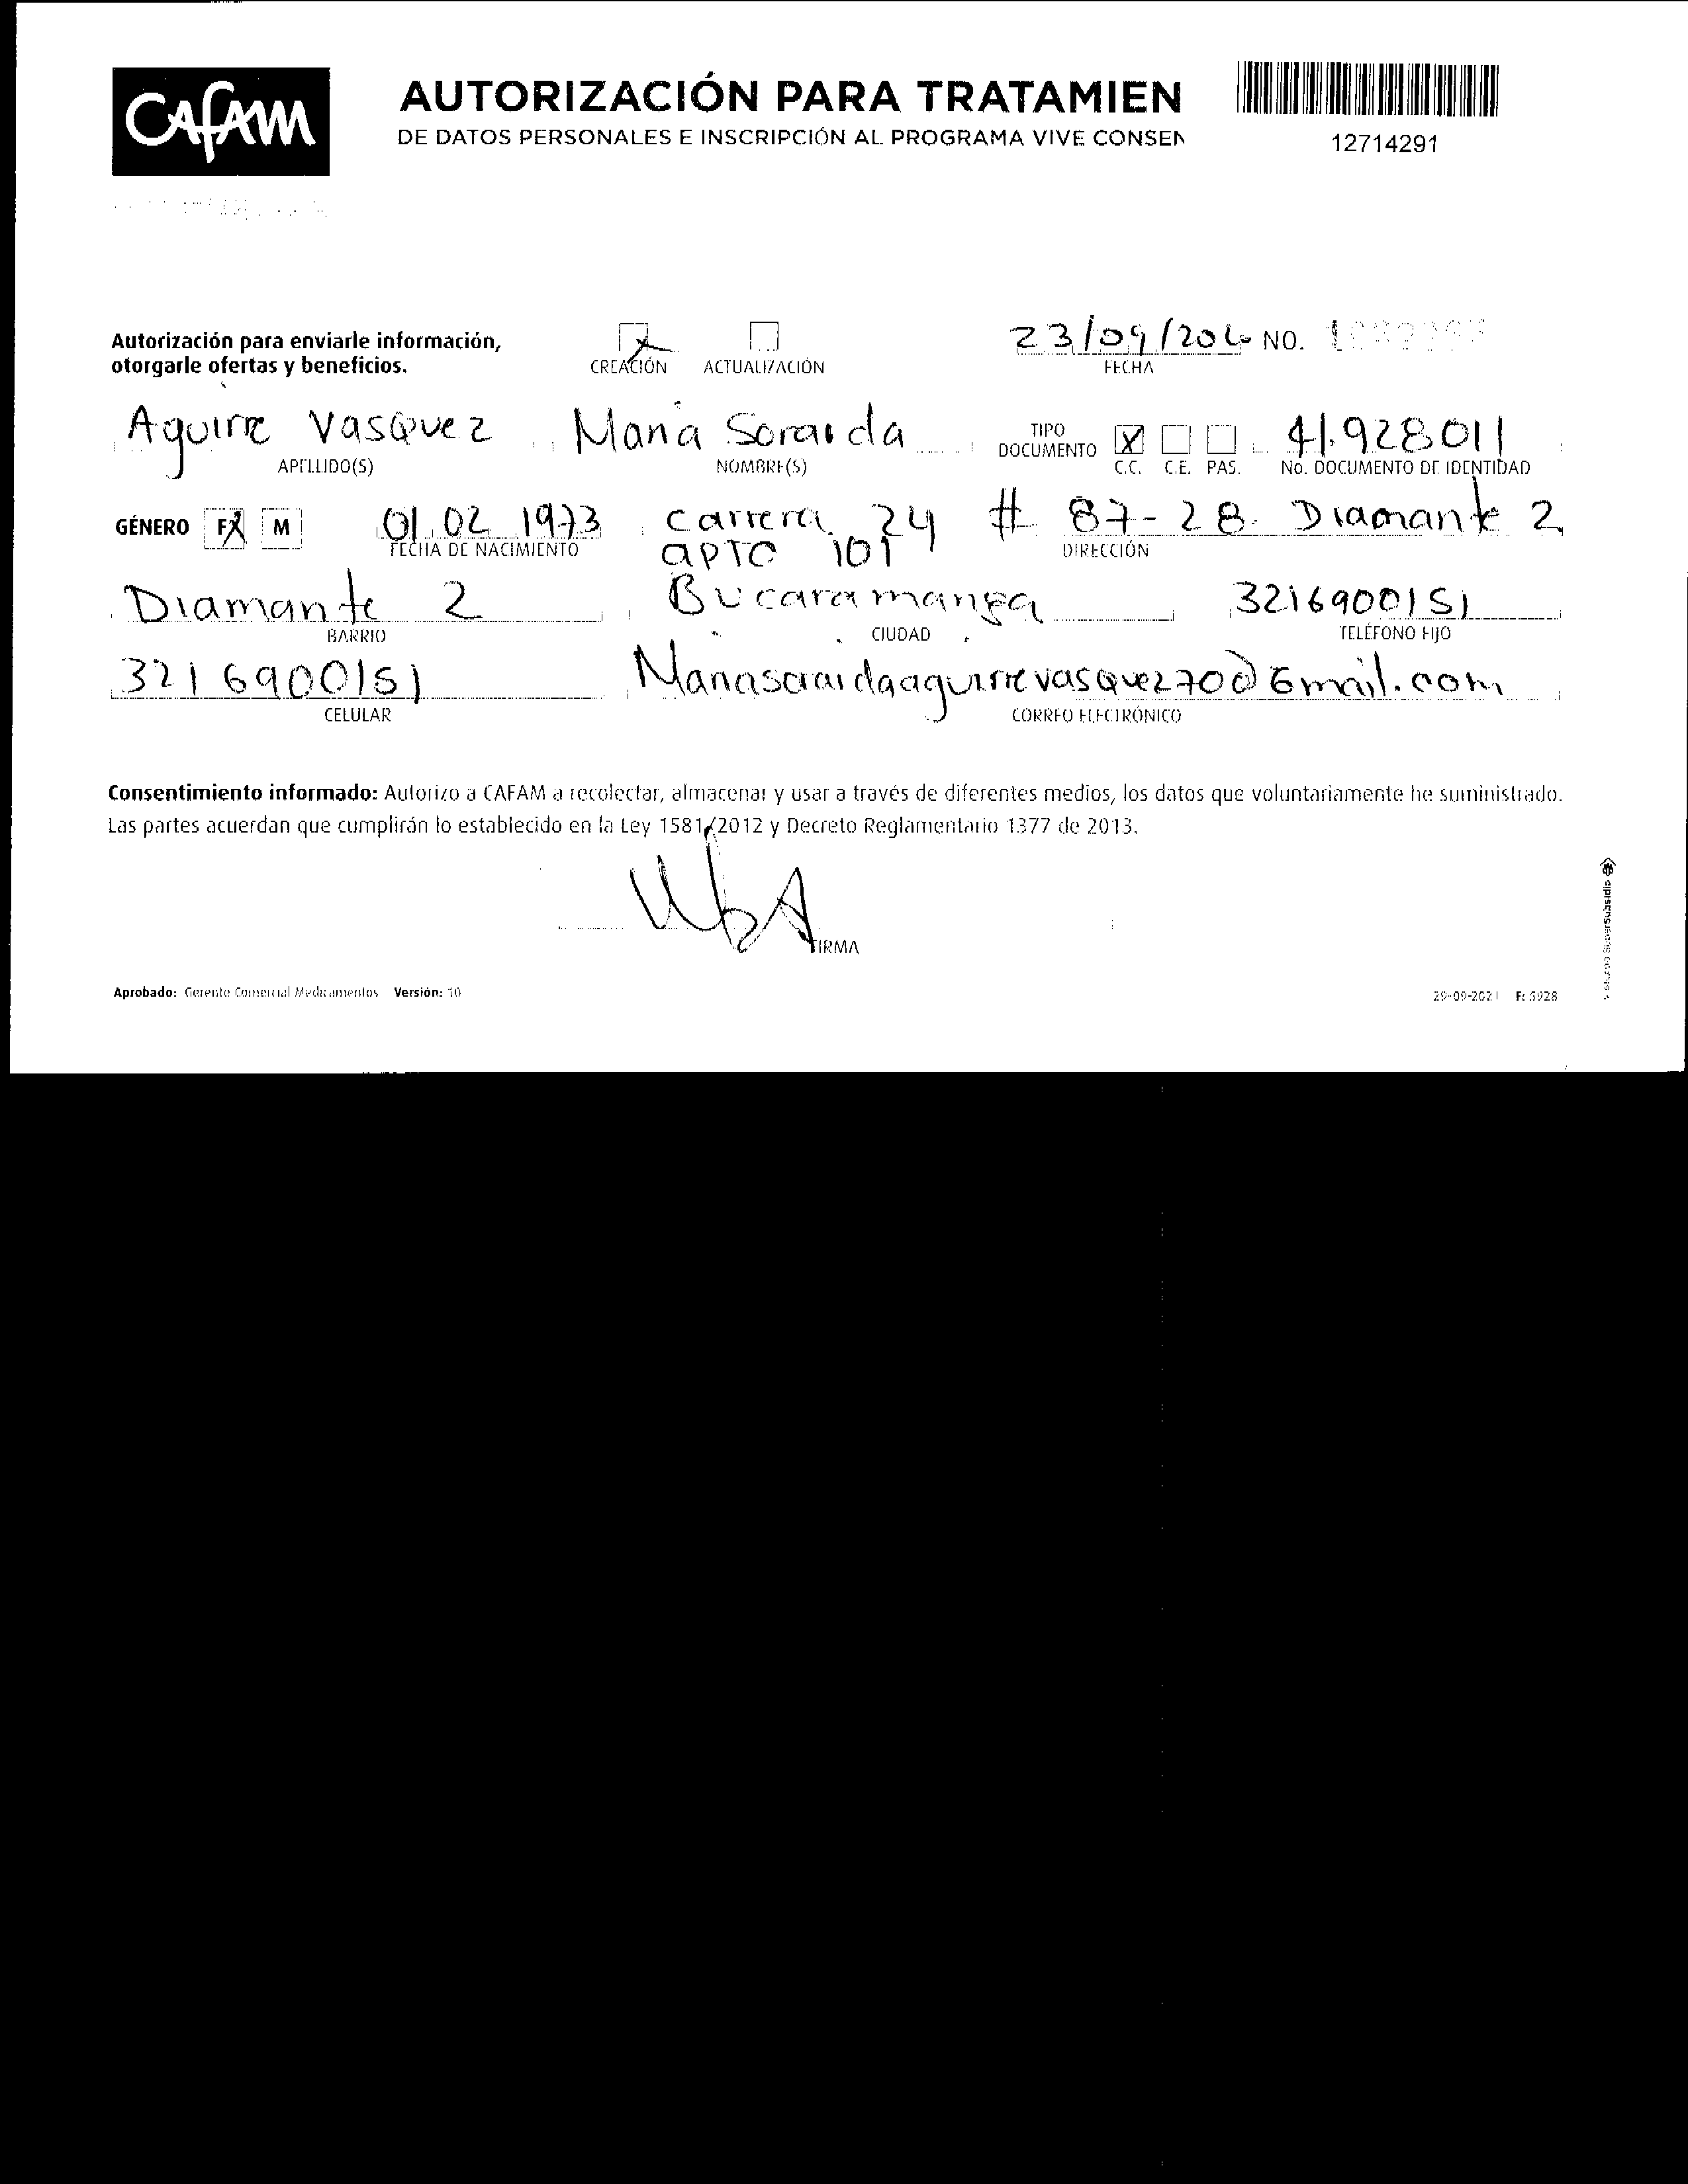 CAFAM
AUTORIZACIÓN PARA TRATAMIEN
DE DATOS PERSONALES E INSCRIPCIÓN AL PROGRAMA VIVE CONSEN
12714291
Autorización para enviarle información,
otorgarle ofertas y beneficios.
X CREACIÓN ACTUALIZACIÓN
23/09/20 NO.
FECHA
Aguirre Vasquez Maria Soraida TIPO DOCUMENTO X 41.928011
APELLIDO(S) NOMBRE(S) C.C. C.E. PAS. No. DOCUMENTO DE IDENTIDAD
GÉNERO F X M 01 02 1973 carrera 24 # 87-28. Diamante 2
apto 101
FECHA DE NACIMIENTO DIRECCIÓN
Diamante 2 Bucaramanga 3216900151
BARRIO CIUDAD TELÉFONO FIJO
3216900151 Mariasoraidaaguirrevasquez70@Gmail.com
CELULAR CORREO ELECTRÓNICO
Consentimiento informado: Autorizo a CAFAM a recolectar, almacenar y usar a través de diferentes medios, los datos que voluntariamente he suministrado.
Las partes acuerdan que cumplirán lo establecido en la Ley 1581/2012 y Decreto Reglamentario 1377 de 2013.
FIRMA
Aprobado: Gerente Comercial Medicamentos Versión: 10
29-09-2021 F: 5928
SuperSubsidio